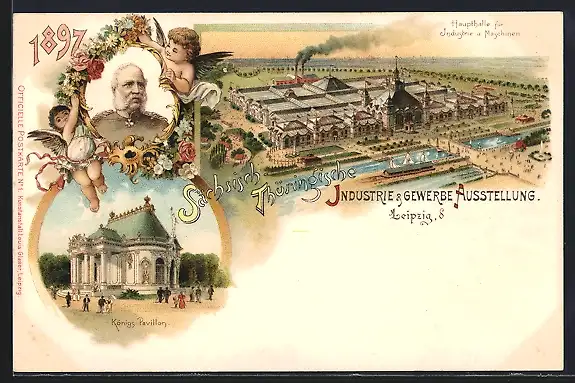 1897
Haupthalle für
Industrie u Maschinen
Sächsisch
Thüringische
INDUSTRIE & GEWERBE AUSSTELLUNG.
Leipzig, d
Königs-Pavillon.
OFFICIELLE POSTKARTE No 1. Kunstanstalt Louis Glaser, Leipzig